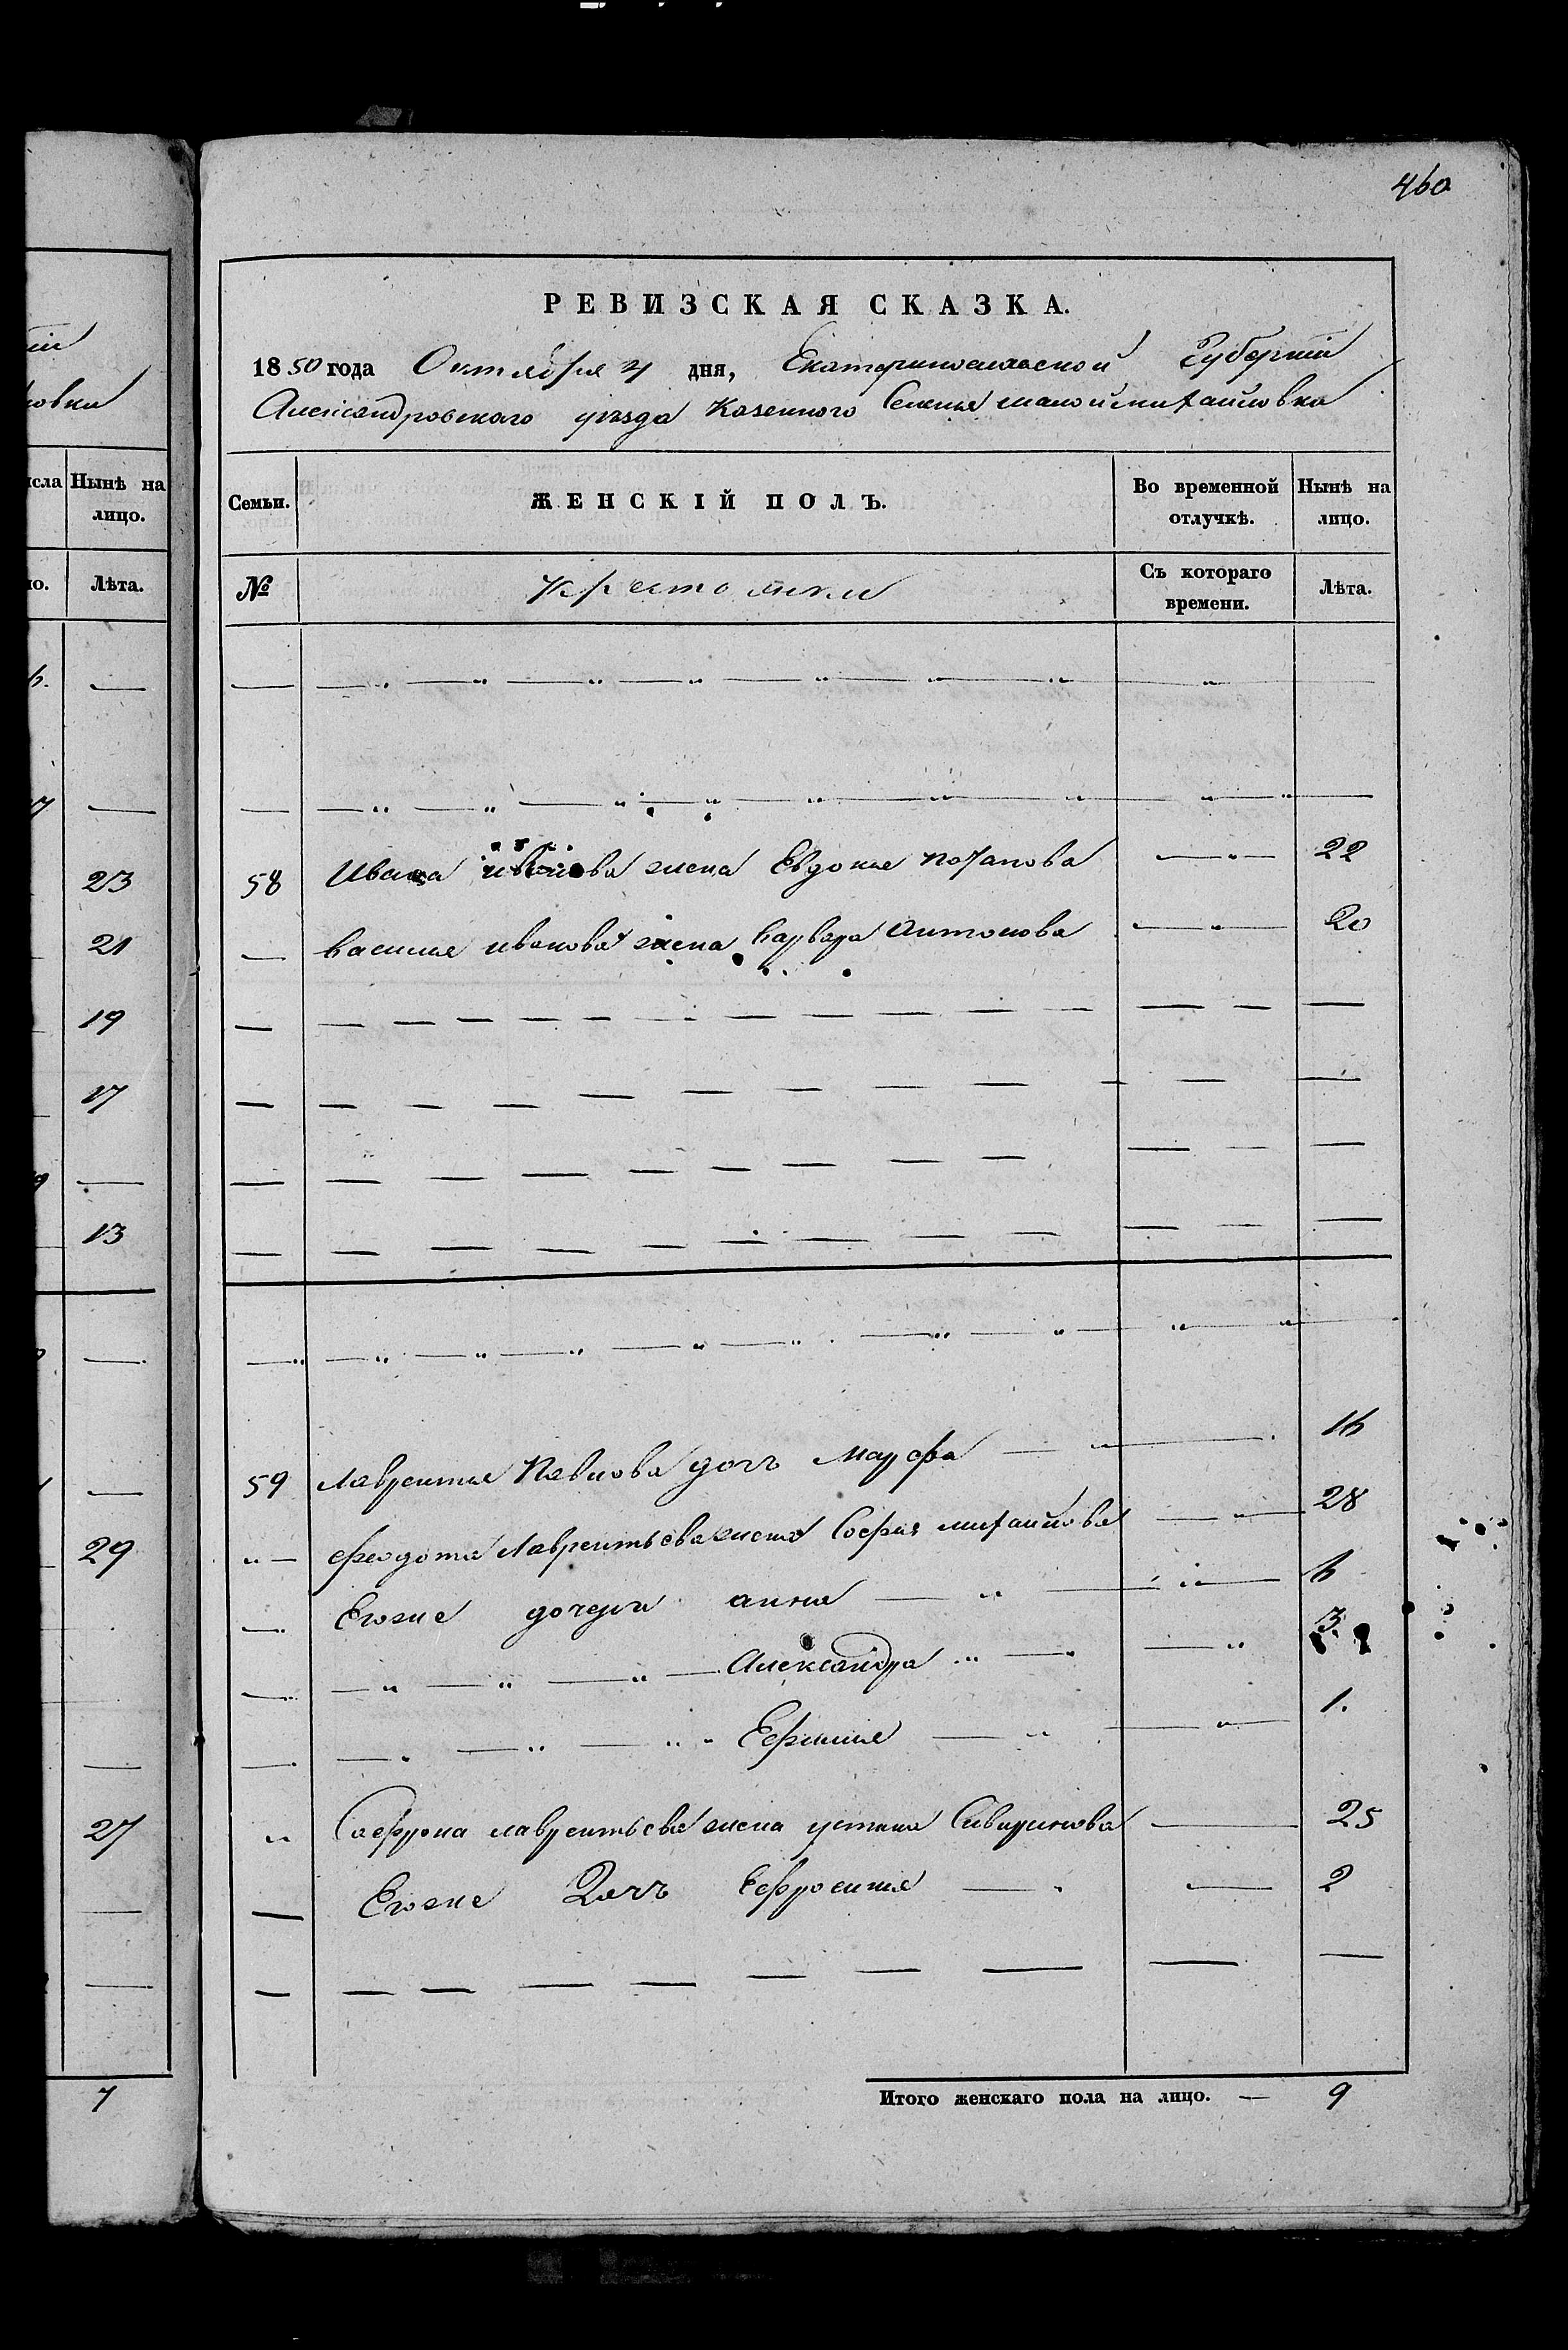 460
РЕВИЗСКАЯ СКАЗКА.
1850 года Октября 4 дня, Екатеринославской Губернии
Александровского уѣзда Казенного Селенья малой михайловки
Семьи. ЖЕНСКІЙ ПОЛЪ. Во временной отлучкѣ. Нынѣ на лицо.
№ Крестьянки Съ котораго времени. Лѣта.
58 Ивана иванова жена Евдокия Потапова — 22
— василия иванова жена варвара Антонова — 20
59 Лаврентия Павлова дочь Марфа — 16
" — феодота Лаврентьева жена София михайлова — 28
— Егоже дочери анна — 6
— " — " — Александра " — 3
— " — " — Ефимия — 1.
" Софрона лаврентьева жена устина Сивиринова — 25
— Егоже Дочь Ефросиния — 2
Итого женскаго пола на лицо. — 9
ісла Нынѣ на лицо.
ло. Лѣта.
23
21
19
17
13
29
27
7